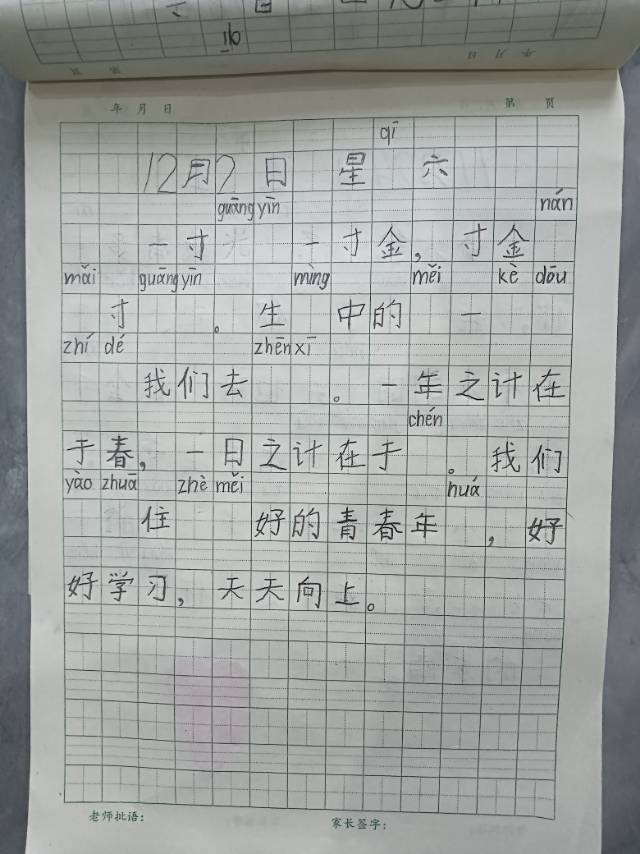 qī
年 月 日 第 页
qī
12月7日 星 六
guāng yīn nán
一寸 一寸金, 寸金
mǎi guāng yīn mìng měi kè dōu
寸 。 生 中的 一
zhí dé zhēn xī
我们去 。 一年之计在
chén
于春, 一日之计在于 。 我们
yào zhuā zhè měi huá
住 好的青春年 , 好
好学习, 天天向上。
老师批语: 家长签字: